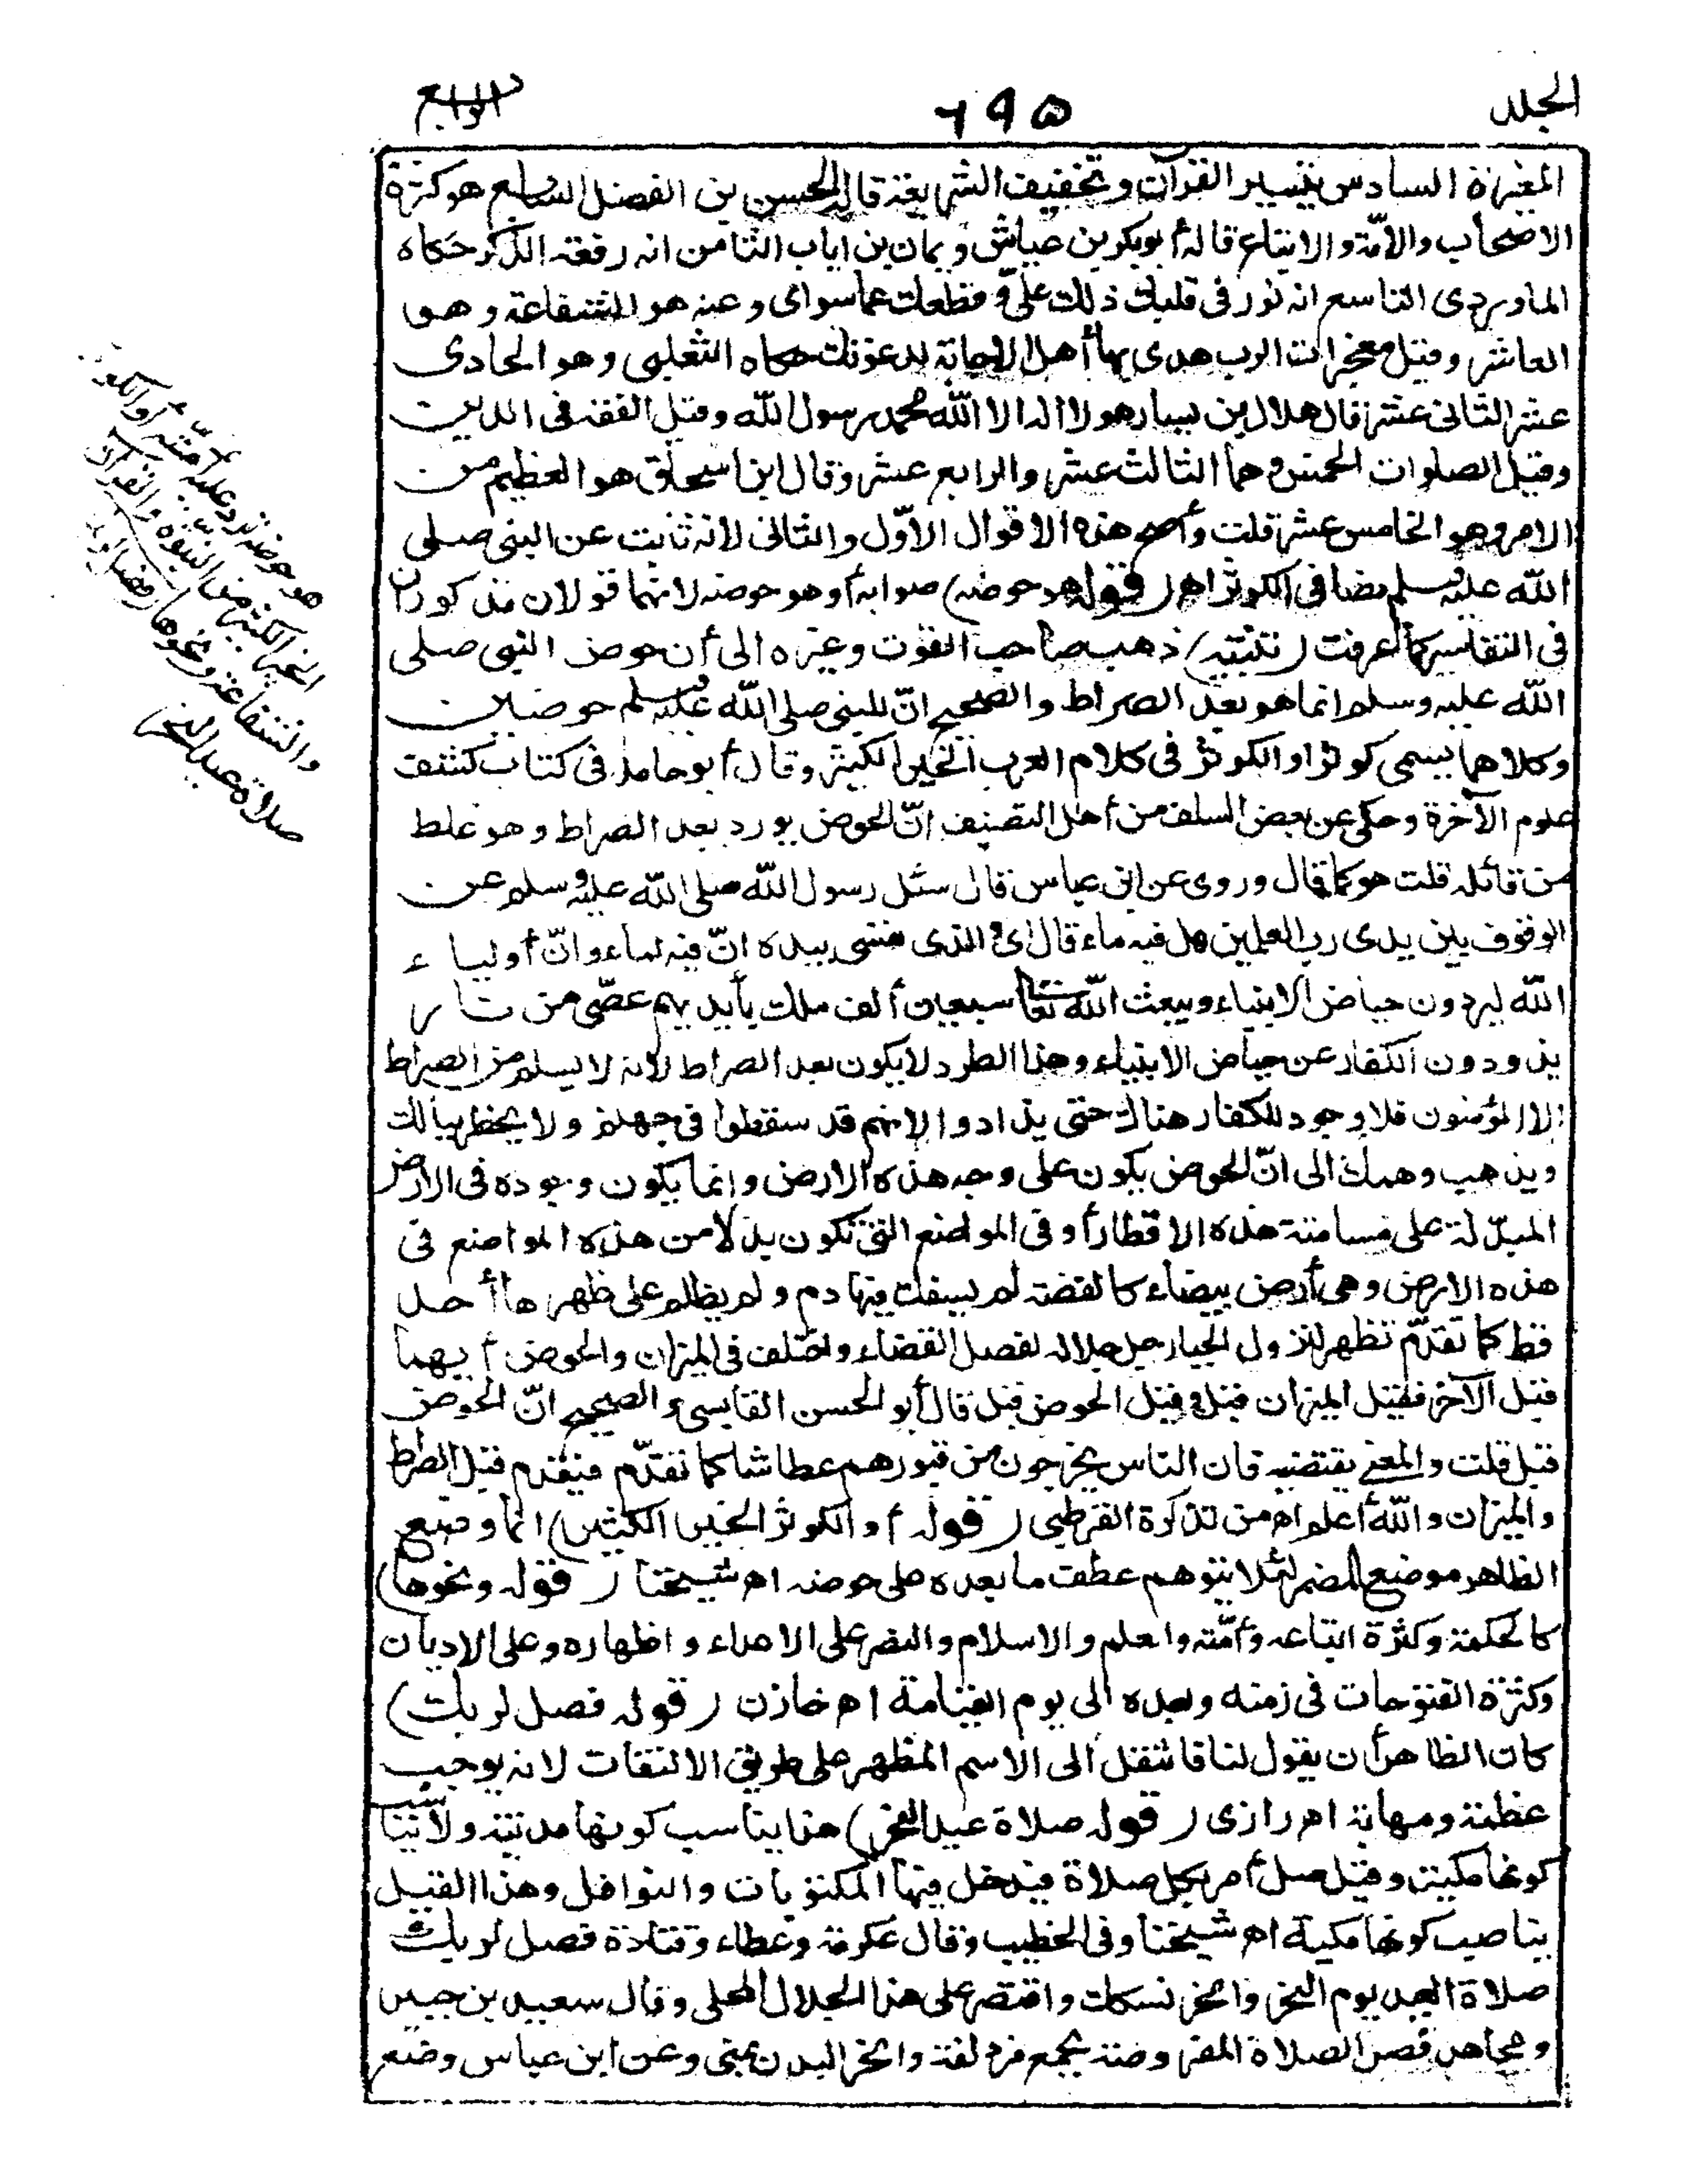 الجلد
٦٩٥
الرابع
المغيرة السادس تيسير القرآن وتخفيف الشريعة قاله الحسن بن الفضل السابع هو كثرة
الاصحاب والأمّة والاتباع قاله أبوبكر بن عياش ويمان بن اياب الثامن انه رفعة الذكر حكاه
الماوردي التاسع انه نور في قلبك ذلك علىّ وقطعك عما سواى وعنه هو الشفاعة وهو
العاشر وقيل معجزات الرب هدى بها أهل الاجابة لدعوتك حكاه الثعلبى وهو الحادى
عشر الثانى عشر قال هلال بن يسار هو لا اله الا الله محمد رسول الله وقيل الفقه فى الدين
وقيل الصلوات الخمس وهما الثالث عشر والرابع عشر وقال ابن اسحاق هو العظيم من
الامر وهو الخامس عشر قلت وأصح هذه الاقوال الاوّل والثانى لانه ثابت عن النبى صلى
الله عليه وسلم نصا فى الكوثر اهـ (قوله هو حوضه) صوابه أو هو حوضه لانهما قولان مذكوران
فى التفاسير كما عرفت (تنبيه) ذهب صاحب القوت وغيره الى أن حوض النبى صلى
الله عليه وسلم انما هو بعد الصراط والصحيح انّ للنبى صلى الله عليه وسلم حوضين
وكلاهما يسمى كوثرا والكوثر فى كلام العرب الخير الكثير وقال أبو حامد فى كتاب كشف
علوم الآخرة وحكى عن بعض السلف من أهل التصنيف انّ الحوض يورد بعد الصراط وهو غلط
من قائله قلت هو كما قال وروى عن ابن عباس قال سئل رسول الله صلى الله عليه وسلم عن
الوقوف بين يدى رب العلمين هل فيه ماء قال اى والذى نفسى بيده انّ فيه لماء وانّ أولياء
الله ليردون حياض الانبياء ويبعث الله تعالى سبعين ألف ملك بأيديهم عصىّ من نار
يذودون الكفار عن حياض الانبياء وهذا الطرد لا يكون بعد الصراط لانه لا يسلم من الصراط
الا المؤمنون فلا وجود للكفار هناك حتى يذادوا لانهم قد سقطوا فى جهنم ولا يخطر ببالك
ويذهب وهمك الى انّ الحوض يكون على وجه هذه الارض وانما يكون وجوده فى الارض
المبدّلة على مسامتة هذه الاقطار أو فى المواضع التى تكون بدلا من هذه المواضع فى
هذه الارض وهى أرض بيضاء كالفضة لم يسفك فيها دم ولم يظلم على ظهرها أحد
قط كما تقدّم تظهر لنزول الجبار جل جلاله لفصل القضاء واختلف فى الميزان والحوض أيهما
قبل الآخر فقيل الميزان قبل وقيل الحوض قبل قال أبو الحسن القابسى والصحيح انّ الحوض
قبل قلت والمعنى يقتضيه فان الناس يخرجون من قبورهم عطاشا كما تقدّم فيقدم قبل الصراط
والميزان والله أعلم اهـ من تذكرة القرطبى (قوله أو الكوثر الخير الكثير) انما وضع
الظاهر موضع المضمر لئلا يتوهم عطف ما بعده على حوضه اهـ شيخنا (قوله ونحوها)
كالحكمة وكثرة اتباعه وأمّته والعلم والاسلام والنصر على الاعداء واظهاره وعلى الاديان
وكثرة الفتوحات فى زمنه وبعده الى يوم القيامة اهـ خازن (قوله فصل لربك)
كان الظاهر أن يقول لنا فانتقل الى الاسم المظهر على طريق الالتفات لانه يوجب
عظمة ومهابة اهـ رازى (قوله صلاة عيد النحر) هذا يناسب كونها مدنية ولا يناسب
كونها مكية وقيل صل أمر بكل صلاة فيدخل فيها المكتوبات والنوافل وهذا القيل
يناصب كونها مكية اهـ شيخنا وفى الخطيب وقال عكرمة وعطاء وقتادة فصل لربك
صلاة العيد يوم النحر وانحر نسكك واقتصر على هذا الجلال المحلى وقال سعيد بن جبير
ومجاهد فصل الصلاة المفروضة بجمع مزدلفة وانحر البدن بمنى وعن ابن عباس وضع
هو حوضه ترد عليه أمّته أو الكوثر
الخير الكثير من النبّوة والقرآن
والشفاعة ونحوها (فصل لربك)
صلاة عيد النحر